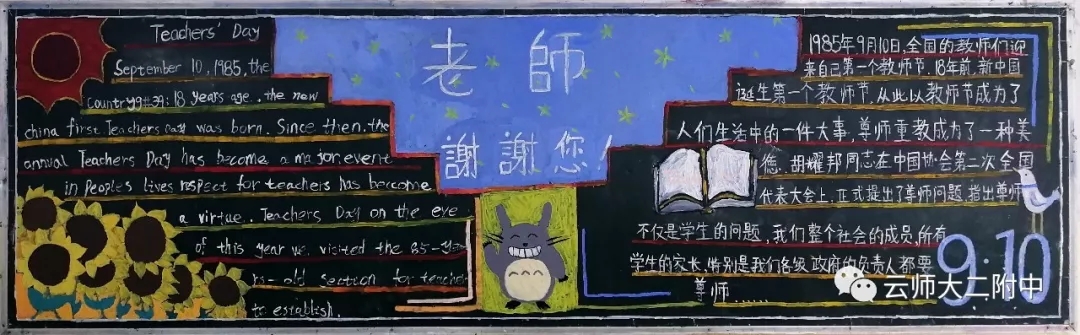 Teachers' Day
September 10, 1985, the
country9#39; 18 years age.. the new
china first Teachers Day was born. Since then, the
annual Teachers Day has become a major event
in Peoples lives respect for teachers has beccome
a virtue. Teachers Day on the eve
of this year we visited the 85-year
rs-old section for teacher
to establish.
老師
謝謝您!
1985年9月10日,全国的教师们迎
来自己第一个教师节.18年前,新中国
诞生第一个教师节,从此以教师节成为了
人们生活中的一件大事,尊师重教成为了一种美
德.胡耀邦同志在中国协会第二次全国
代表大会上,正式提出了尊师问题.指出尊师
不仅是学生的问题,我们整个社会的成员,所有
学生的家长,特别是我们各级政府的负责人都要
尊师......
9.10
云师大二附中